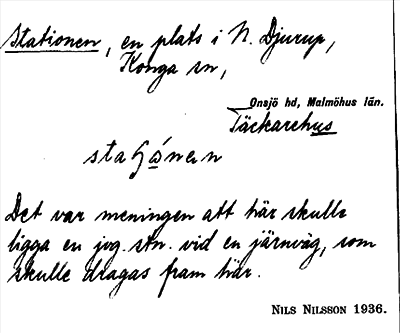 Stationen, en plats i N. Djurup,
Konga sn,
Onsjö hd, Malmöhus län.
Täckarehus
Det var meningen att här skulle
ligga en jvg. stn. vid en järnväg, som
skulle dragas fram här.
NILS NILSSON 1936.